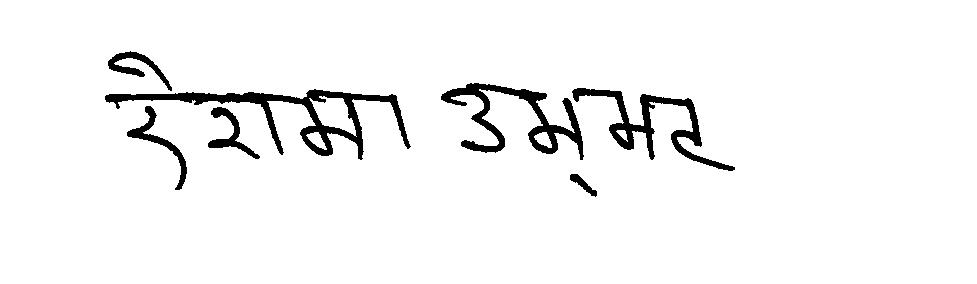 रेशमा उम्मर